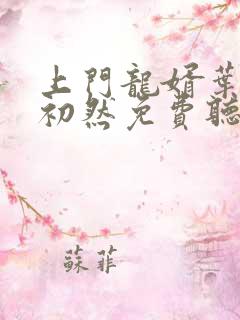 上門龍婿葉
初然免費聽
蘇菲